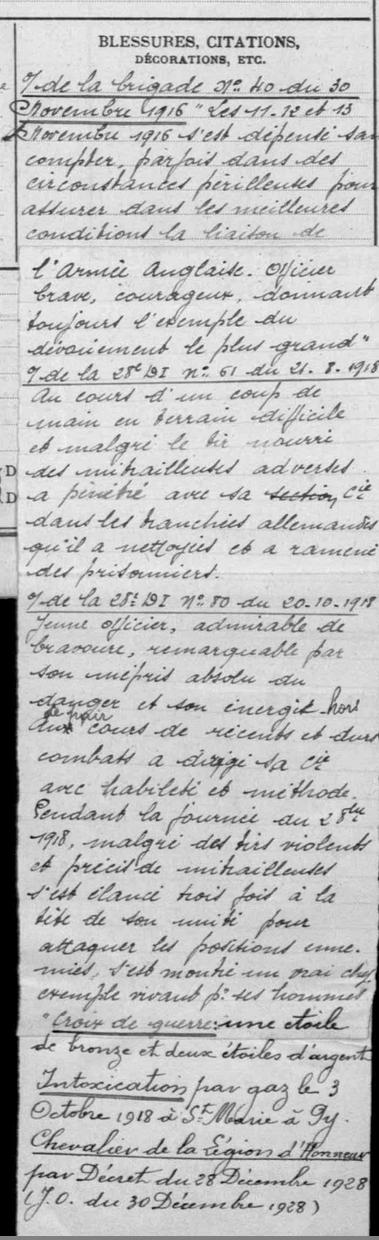 BLESSURES, CITATIONS,
DÉCORATIONS, ETC.
O/ de la brigade No 40 du 30
Novembre 1916 "Les 11-12 et 13
Novembre 1916 s'est dépensé sans
compter, parfois dans des
circonstances périlleuses pour
assurer dans les meilleures
conditions la liaison de
l'Armée Anglaise. Officier
brave, courageux, donnant
toujours l'exemple du
dévouement le plus grand"
O/ de la 28e DI no 61 du 21-8-1918
Au cours d'un coup de
main en terrain difficile
et malgré le tir nourri
des mitrailleuses adverses.
a pénétré avec sa section Cie
dans les tranchées allemandes
qu'il a nettoyées et a ramené
des prisonniers.
O/ de la 28e DI No 80 du 20-10-1918
Jeune officier, admirable de
bravoure, remarquable par
son mépris absolu du
danger et son énergie hors
de pair
Aux cours de récents et durs
combats a dirigé sa Cie
avec habileté et méthode.
Pendant la journée du 28
1918, malgré des tirs violents
et précis de mitrailleuses
s'est élancé trois fois à la
tête de son unité pour
attaquer les positions enne-
mies, s'est montré un vrai chef
exemple vivant pr ses hommes
"Croix de guerre: une étoile
de bronze et deux étoiles d'argent
Intoxication par gaz le 3
Octobre 1918 à St Marie à Py.
Chevalier de la Légion d'Honneur
par Décret du 28 Décembre 1928
(J.O. du 30 Décembre 1928)